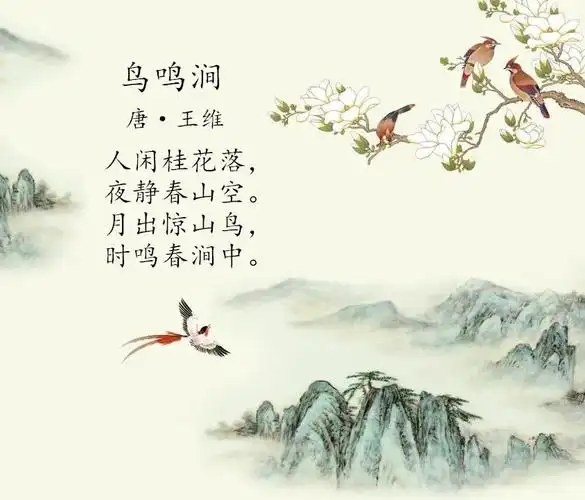 鸟鸣涧
唐·王维
人闲桂花落，
夜静春山空。
月出惊山鸟，
时鸣春涧中。